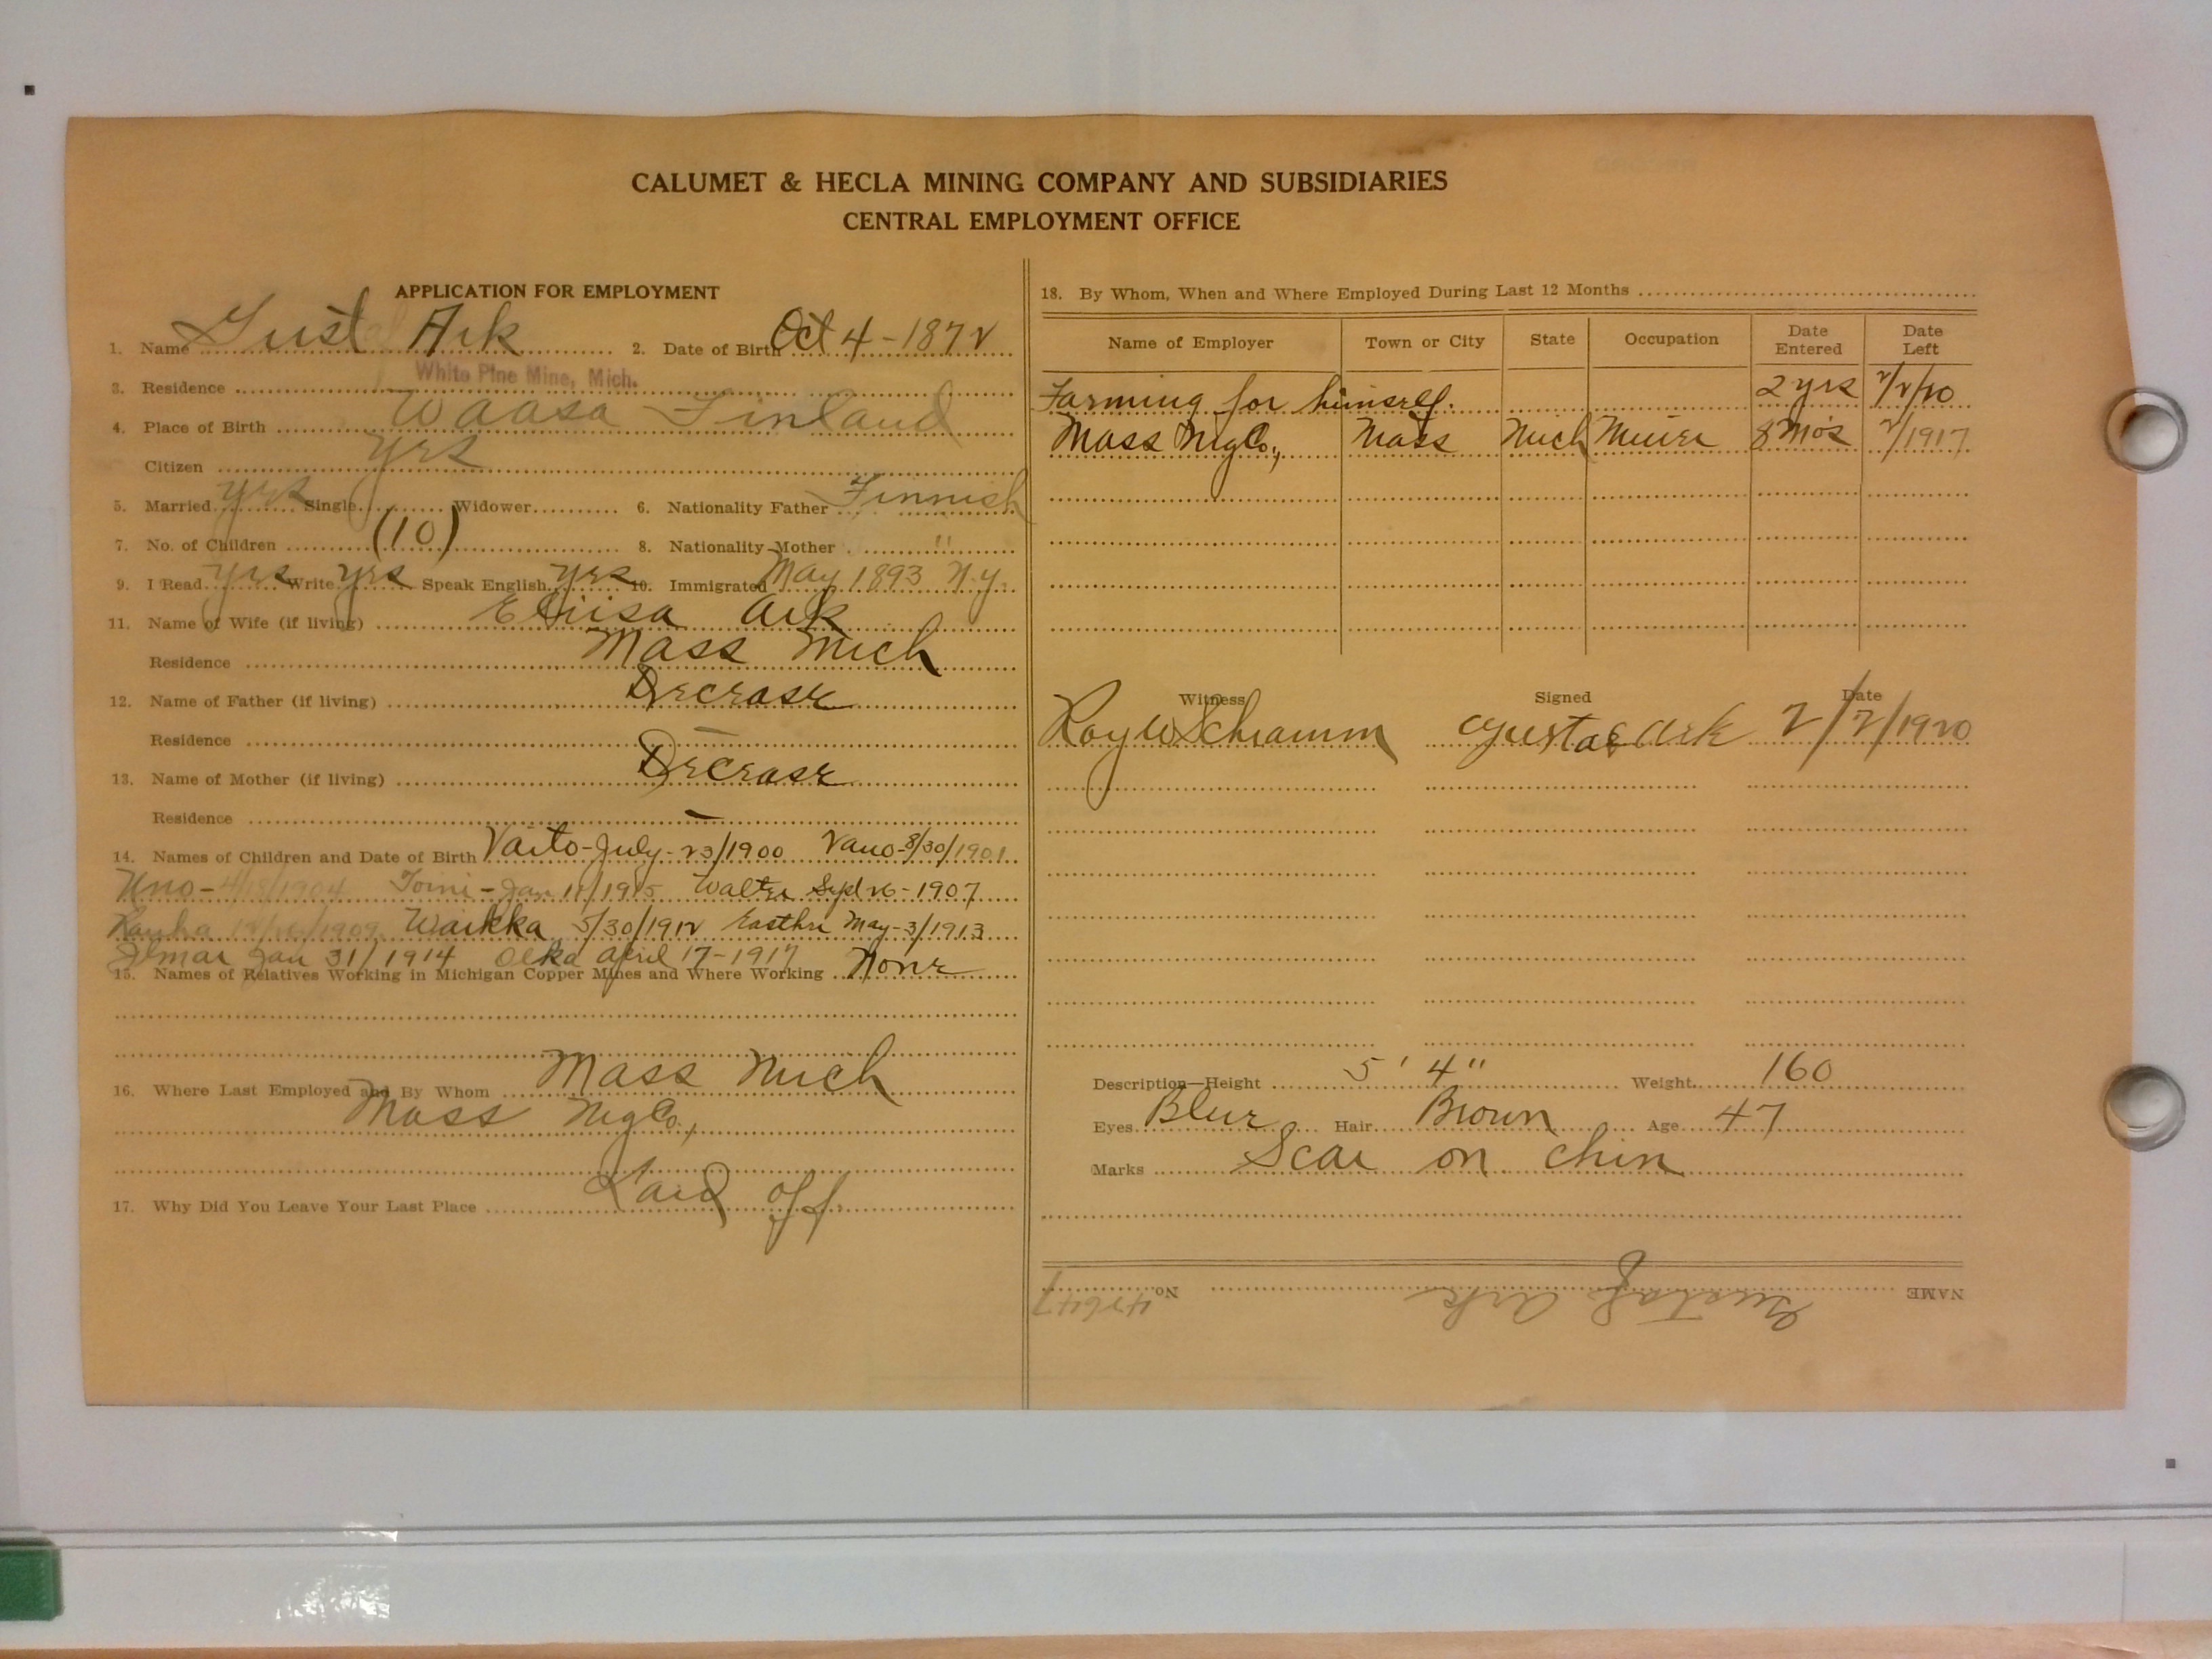 CALUMET & HECLA MINING COMPANY AND SUBSIDIARIES
CENTRAL EMPLOYMENT OFFICE
APPLICATION FOR EMPLOYMENT
1. Name Gust Ark 2. Date of Birth Oct 4-1872
3. Residence White Pine Mine, Mich.
4. Place of Birth Waasa Finland
Citizen yes
5. Married yes Single Widower 6. Nationality Father Finnish
7. No. of Children (10) 8. Nationality Mother "
9. I Read yes Write yes Speak English yes 10. Immigrated May 1893 N.Y.
11. Name of Wife (if living) Ark
Residence Mass Mich
12. Name of Father (if living) Decease
Residence —
13. Name of Mother (if living) Decease
Residence —
14. Names of Children and Date of Birth July-23/1900 8/30/1901
Uno- 4/18/1904 Toini-Jan 11/1915 Walter Sept 26-1907
Waikka 5/30/1912 May-3/1913
Jan 31/1914 April 17-1917
15. Names of Relatives Working in Michigan Copper Mines and Where Working None
16. Where Last Employed and By Whom Mass Mich
Mass Mg Co.,
17. Why Did You Leave Your Last Place Laid off.
18. By Whom, When and Where Employed During Last 12 Months
Name of Employer Town or City State Occupation Date Entered Date Left
Farming for himself. 2 yrs 2/2/20
Mass Mg Co., Mass Mich Miner 8 Mos 2/1917
Witness Signed Date
Roy W Schramm Gustaf Ark 2/2/1920
Description—Height 5' 4" Weight 160
Eyes Blue Hair Brown Age 47
Marks Scar on chin
NAME Gustaf Ark No.